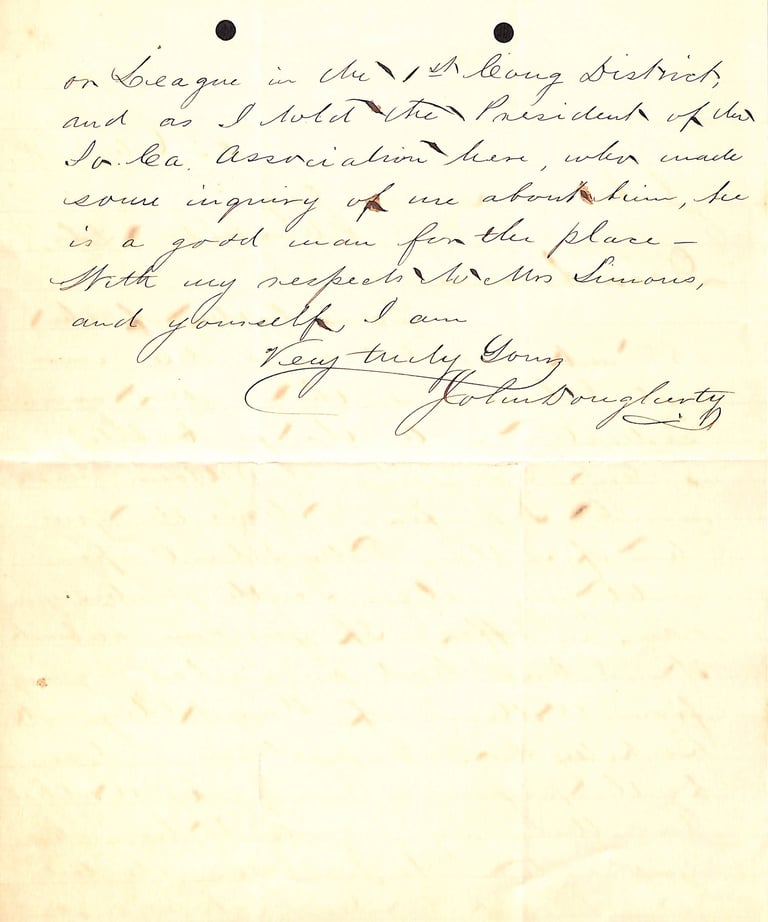 or League in the 1st Cong District,
and as I told the President of the
So. Ca. Association here, who made
some inquiry of me about him, he
is a good man for the place —
With my respects to Mrs Simons,
and yourself, I am
Very truly Yours
John Dougherty